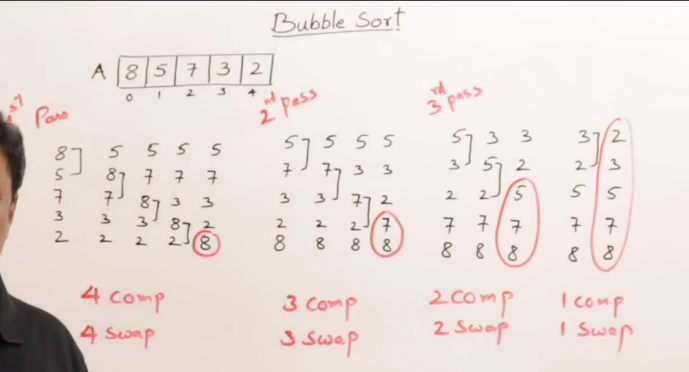 Bubble Sort
A 8 5 7 3 2
0 1 2 3 4
1st Pass
2nd pass
3rd pass
8 5 5 5 5
5 8 7 7 7
7 7 8 3 3
3 3 3 8 2
2 2 2 2 8
4 comp
4 swap
5 5 5 5
7 7 3 3
3 3 7 2
2 2 2 7
8 8 8 8
3 comp
3 swap
5 3 3
3 5 2
2 2 5
7 7 7
8 8 8
2 comp
2 swap
3 2
2 3
5 5
7 7
8 8
1 comp
1 swap